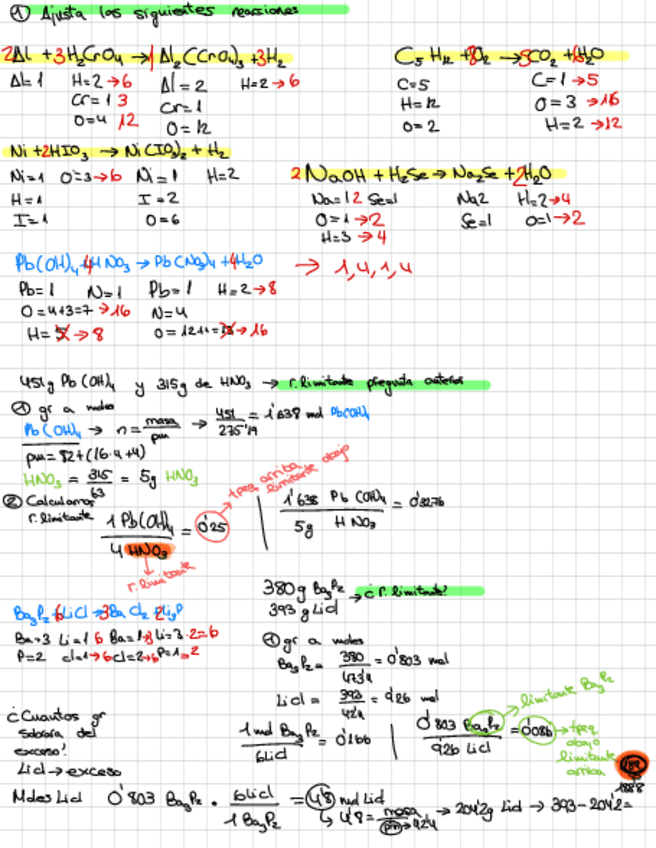 ① Ajusta las siguientes reacciones
2Al + 3H₂CrO₄ → 1 Al₂(CrO₄)₃ + 3H₂
Al=1 H=2→6 Al=2 H=2→6
Cr=1 3 Cr=1
O=4 12 O=12
C₅H₁₂ + 8O₂ → 5CO₂ + 6H₂O
C=5 C=1→5
H=12 O=3→16
O=2 H=2→12
Ni + 2HIO₃ → Ni(IO₃)₂ + H₂
Ni=1 O=3→6 Ni=1 H=2
H=1 I=2
I=1 O=6
2NaOH + H₂Se → Na₂Se + 2H₂O
Na=1 2 Se=1 Na2 H=2→4
O=1→2 Se=1 O=1→2
H=3→4
Pb(OH)₄ + 4HNO₃ → Pb(NO₃)₄ + 4H₂O → 1,4,1,4
Pb=1 N=1 Pb=1 H=2→8
O=4+3=7→16 N=4
H=5→8 O=12+1=13→16
451g Pb(OH)₄ y 315g de HNO₃ → r. limitante pregunta anterior
① gr a moles
Pb(OH)₄ → n = masa/pm → 451/275'19 = 1'638 mol Pb(OH)₄
pm = 82+(16·4+4)
HNO₃ = 315/63 = 5g HNO₃
② Calculamos r. limitante
1 Pb(OH)₄ / 4 HNO₃ = 0'25 → + peq arriba limitante abajo
r. limitante
1'638 Pb(OH)₄ / 5g HNO₃ = 0'3276
380g Ba₃P₂ → ¿r. limitante?
393g LiCl
Ba₃P₂ + 6LiCl → 3BaCl₂ + 2Li₃P
Ba=3 Li=1 6 Ba=1→3 Li=3·2=6
P=2 Cl=1→6 Cl=2→6 P=1→2
① gr a moles
Ba₃P₂ = 380/473'4 = 0'803 mol
LiCl = 393/42'4 = 9'26 mol
1 mol Ba₃P₂ / 6LiCl = 0'166
0'803 Ba₃P₂ / 9'26 LiCl = 0'086 → + peq abajo limitante arriba
limitante Ba₃P₂
¿Cuantos gr
sobraría del
exceso?
LiCl → exceso
Moles LiCl 0'803 Ba₃P₂ · 6LiCl / 1 Ba₃P₂ = 4'8 mol LiCl
↳ 4'8 = masa / pm → 42'4 → 204'2g LiCl → 393 - 204'2 =
188'8